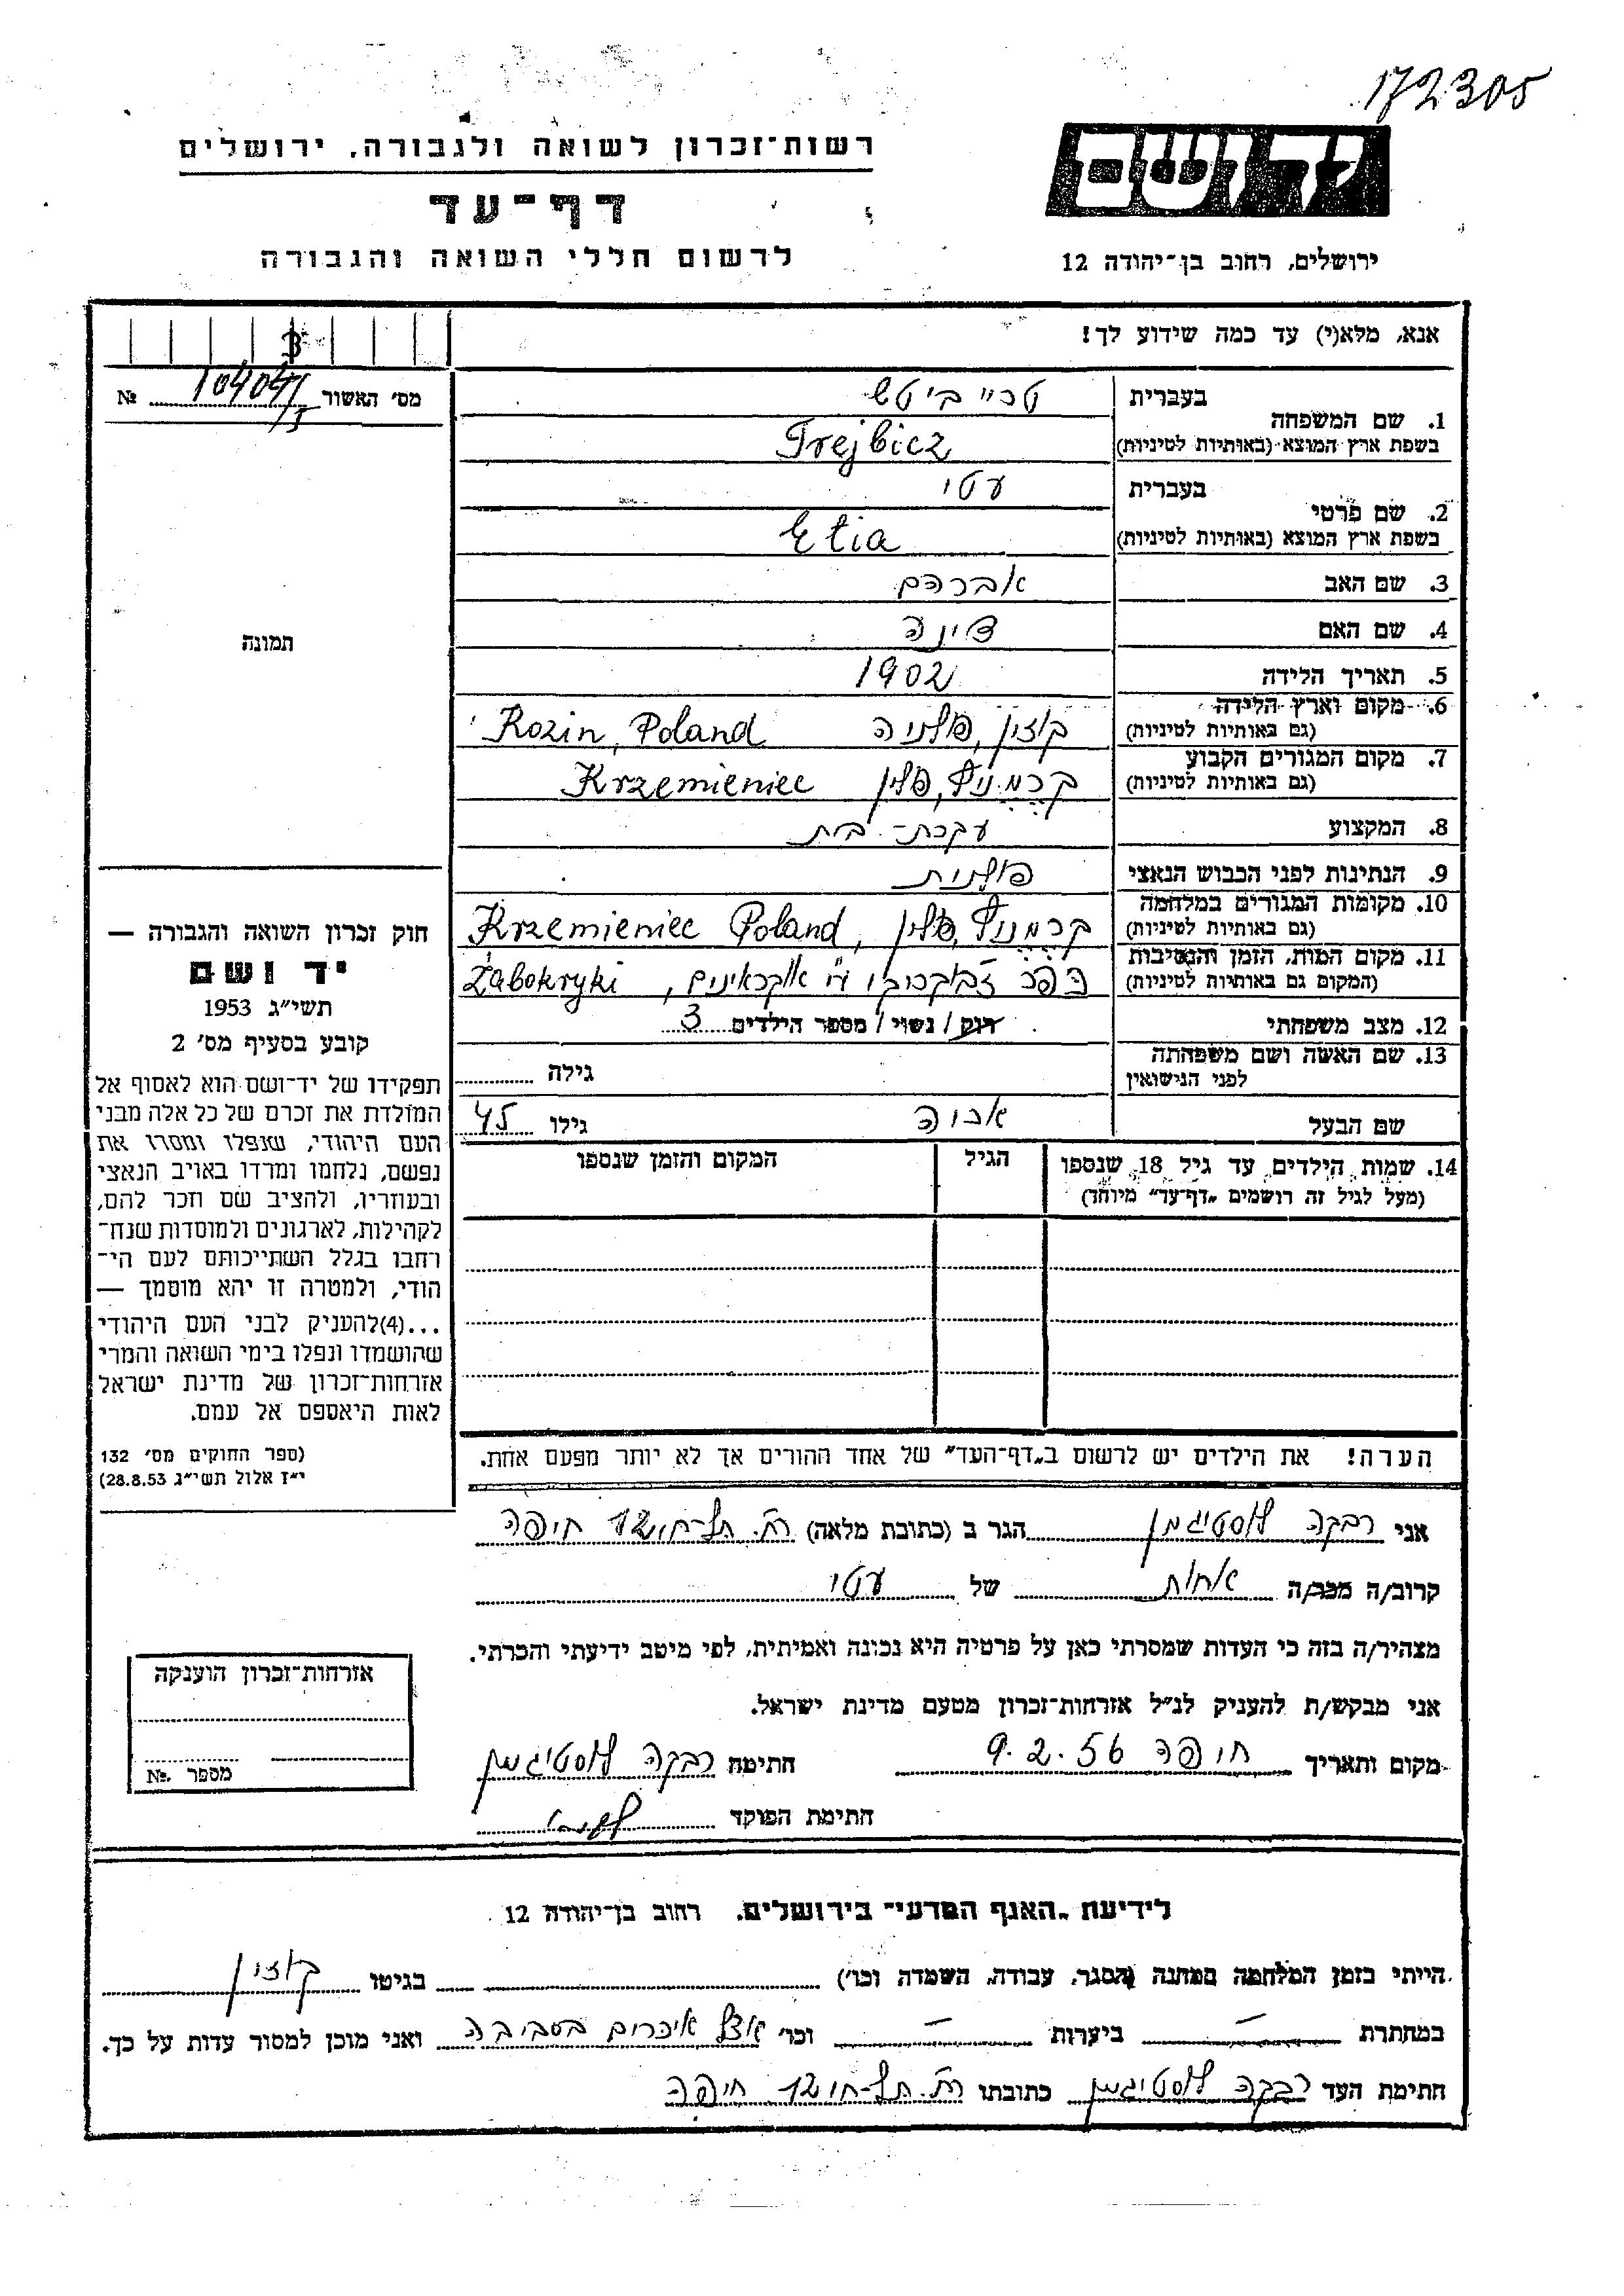 172305
יד ושם
ירושלים, רחוב בן-יהודה 12
רשות-זכרון לשואה ולגבורה, ירושלים
דף-עד
לרשום חללי השואה והגבורה
אנא, מלא(י) עד כמה שידוע לך!
מס' האשור № 104041/I
תמונה
בעברית טרייביטש
1. שם המשפחה
בשפת ארץ המוצא (באותיות לטיניות) Trejbicz
בעברית עטי
2. שם פרטי
בשפת ארץ המוצא (באותיות לטיניות) Etia
3. שם האב אברהם
4. שם האם דינה
5. תאריך הלידה 1902
6. מקום וארץ הלידה קוזין, פולניה Kozin, Poland
(גם באותיות לטיניות)
7. מקום המגורים הקבוע קרמניץ, פולין Krzemieniec
(גם באותיות לטיניות)
8. המקצוע עקרת-בית
9. הנתינות לפני הכבוש הנאצי פולנית
10. מקומות המגורים במלחמה קרמניץ, פולין, Krzemieniec Poland
(גם באותיות לטיניות)
11. מקום המות, הזמן והנסיבות
(המקום גם באותיות לטיניות) בכפר זבוקרוקי ע"י אוקראינים, Zabokryki
12. מצב משפחתי רווק / נשוי / מספר הילדים 3
13. שם האשה ושם משפחתה
לפני הנישואין גילה
שם הבעל אריה גילו 45
14. שמות הילדים עד גיל 18 שנספו הגיל המקום והזמן שנספו
(מעל לגיל זה רושמים "דף-עד" מיוחד)
חוק זכרון השואה והגבורה —
יד ושם
תשי"ג 1953
קובע בסעיף מס' 2
תפקידו של יד-ושם הוא לאסוף אל
המולדת את זכרם של כל אלה מבני
העם היהודי, שנפלו ומסרו את
נפשם, נלחמו ומרדו באויב הנאצי
ובעוזריו, ולהציב שם וזכר להם,
לקהילות, לארגונים ולמוסדות שנח-
רחבו בגלל השתייכותם לעם הי-
הודי, ולמטרה זו יהא מוסמך —
...(4)להעניק לבני העם היהודי
שהושמדו ונפלו בימי השואה והמרי
אזרחות-זכרון של מדינת ישראל
לאות היאספם אל עמם.
(ספר החוקים מס' 132
י"ז אלול תשי"ג 28.8.53)
הערה! את הילדים יש לרשום ב"דף-העד" של אחד ההורים אך לא יותר מפעם אחת.
אני רבקה לוסטיגמן הגר ב (כתובת מלאה) רח. תל-חי 12 חיפה
קרוב/ה מכר/ה אחות של עטי
מצהיר/ה בזה כי העדות שמסרתי כאן על פרטיה היא נכונה ואמיתית, לפי מיטב ידיעתי והכרתי.
אני מבקש/ת להעניק לנ"ל אזרחות-זכרון מטעם מדינת ישראל.
מקום ותאריך חיפה 9.2.56 חתימה רבקה לוסטיגמן
חתימת הפוקד
אזרחות-זכרון הוענקה
מספר №
לידיעת "האגף המדעי" בירושלים, רחוב בן-יהודה 12
הייתי בזמן המלחמה במחנה (הסגר, עבודה, השמדה וכו') בגיטו קוזין
במחתרת — ביערות — וכו' אצל איכרים בסביבה ואני מוכן למסור עדות על כך.
חתימת העד רבקה לוסטיגמן כתובתו רח. תל-חי 12 חיפה